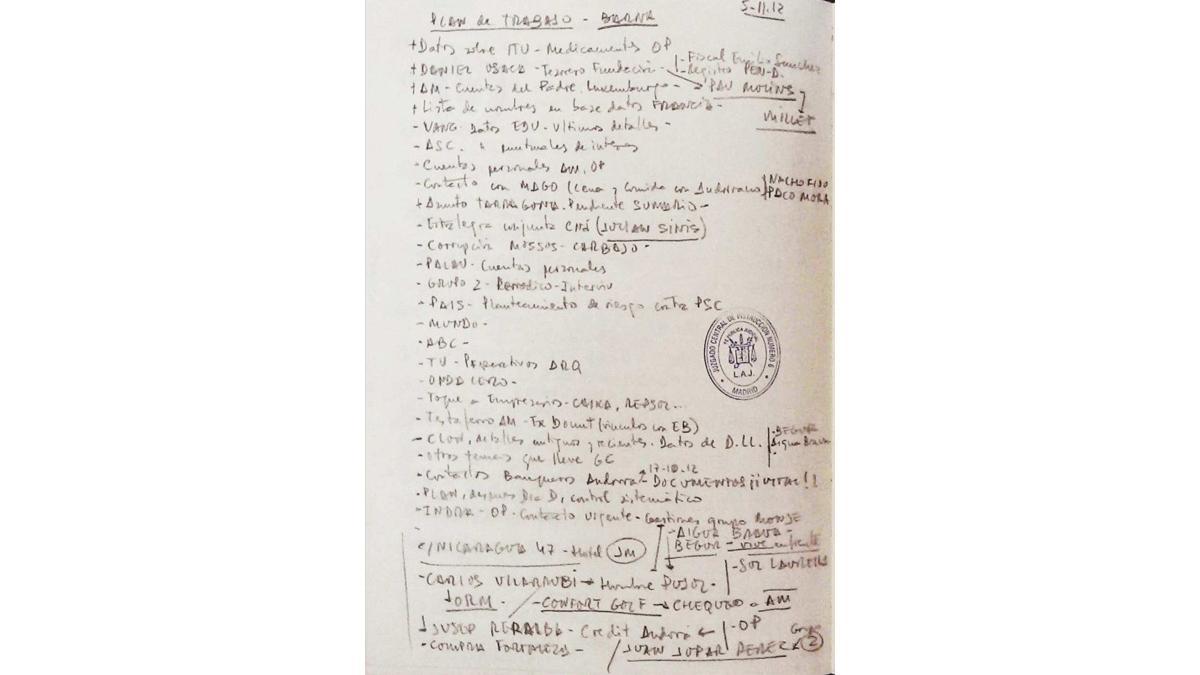 5-11.12
PLAN de TRABAJO - BARNA
+ Datos sobre ITV - Medicamentos OP
+ DANIEL OSACA - Tesorero Fundación - Fiscal Emilio Sanchez
- Registro PEN-D.
+ AM - Cuentas del Padre. Luxemburgo - → PAU MOLINS
+ Lista de nombres en base datos FRANCIA - MILLET
- VANG. Datos EDU - Ultimos detalles -
- ASC. " puntuales de interes
- Cuentas personales AM, OP
- Contacto con MAGO (Cena y Comida con Andorrano) NACHO FIDO
PACO MORA
+ Asunto TARRAGONA. Pendiente SUMARIO -
- Estrategia conjunta CNI (JULIAN SINIS)
- Corrupción MOSSOS - CARBAJO -
- PALAU - Cuentas personales
- GRUPO Z - Periodico - Interviu
- PAIS - Planteamiento de riesgo contra PSC
- MUNDO -
- ABC -
- TV - Preparativos ARQ
- ONDA CERO -
- Toque a Empresarios - CAIXA, REPSOL...
- Testaferro AM - Tx Dount (vinculos con EB)
- CLON, detalles antiguos y recientes. Datos de D.LL. - BEGUR
Aigua Brava
- otros temas que lleve GC
- Contactos Banqueros Andorra 17-10.12 DOCUMENTOS ¡¡VITAL!!
- PLAN, despues Dia D, control sistemático
- INDRA - OP. Contacto urgente - Gestiones grupo MONJE
c/NICARAGUA 47 - Hotel JM - AIGUA BRAVA -
BEGUR - vive enfrente
- CARLOS VILARRUBI → Hombre PUJOL. - SOL
↓ ORM. - CONFORT GOLF → CHEQUEO - AM
↓ JUSEP - Credit Andorrá ← - OP
- COMPRA FORTALEZA - JUAN JUPAR PEREZ Grupo 2
JUZGADO CENTRAL DE INSTRUCCIÓN NUMERO 6
L.A.J.
MADRID